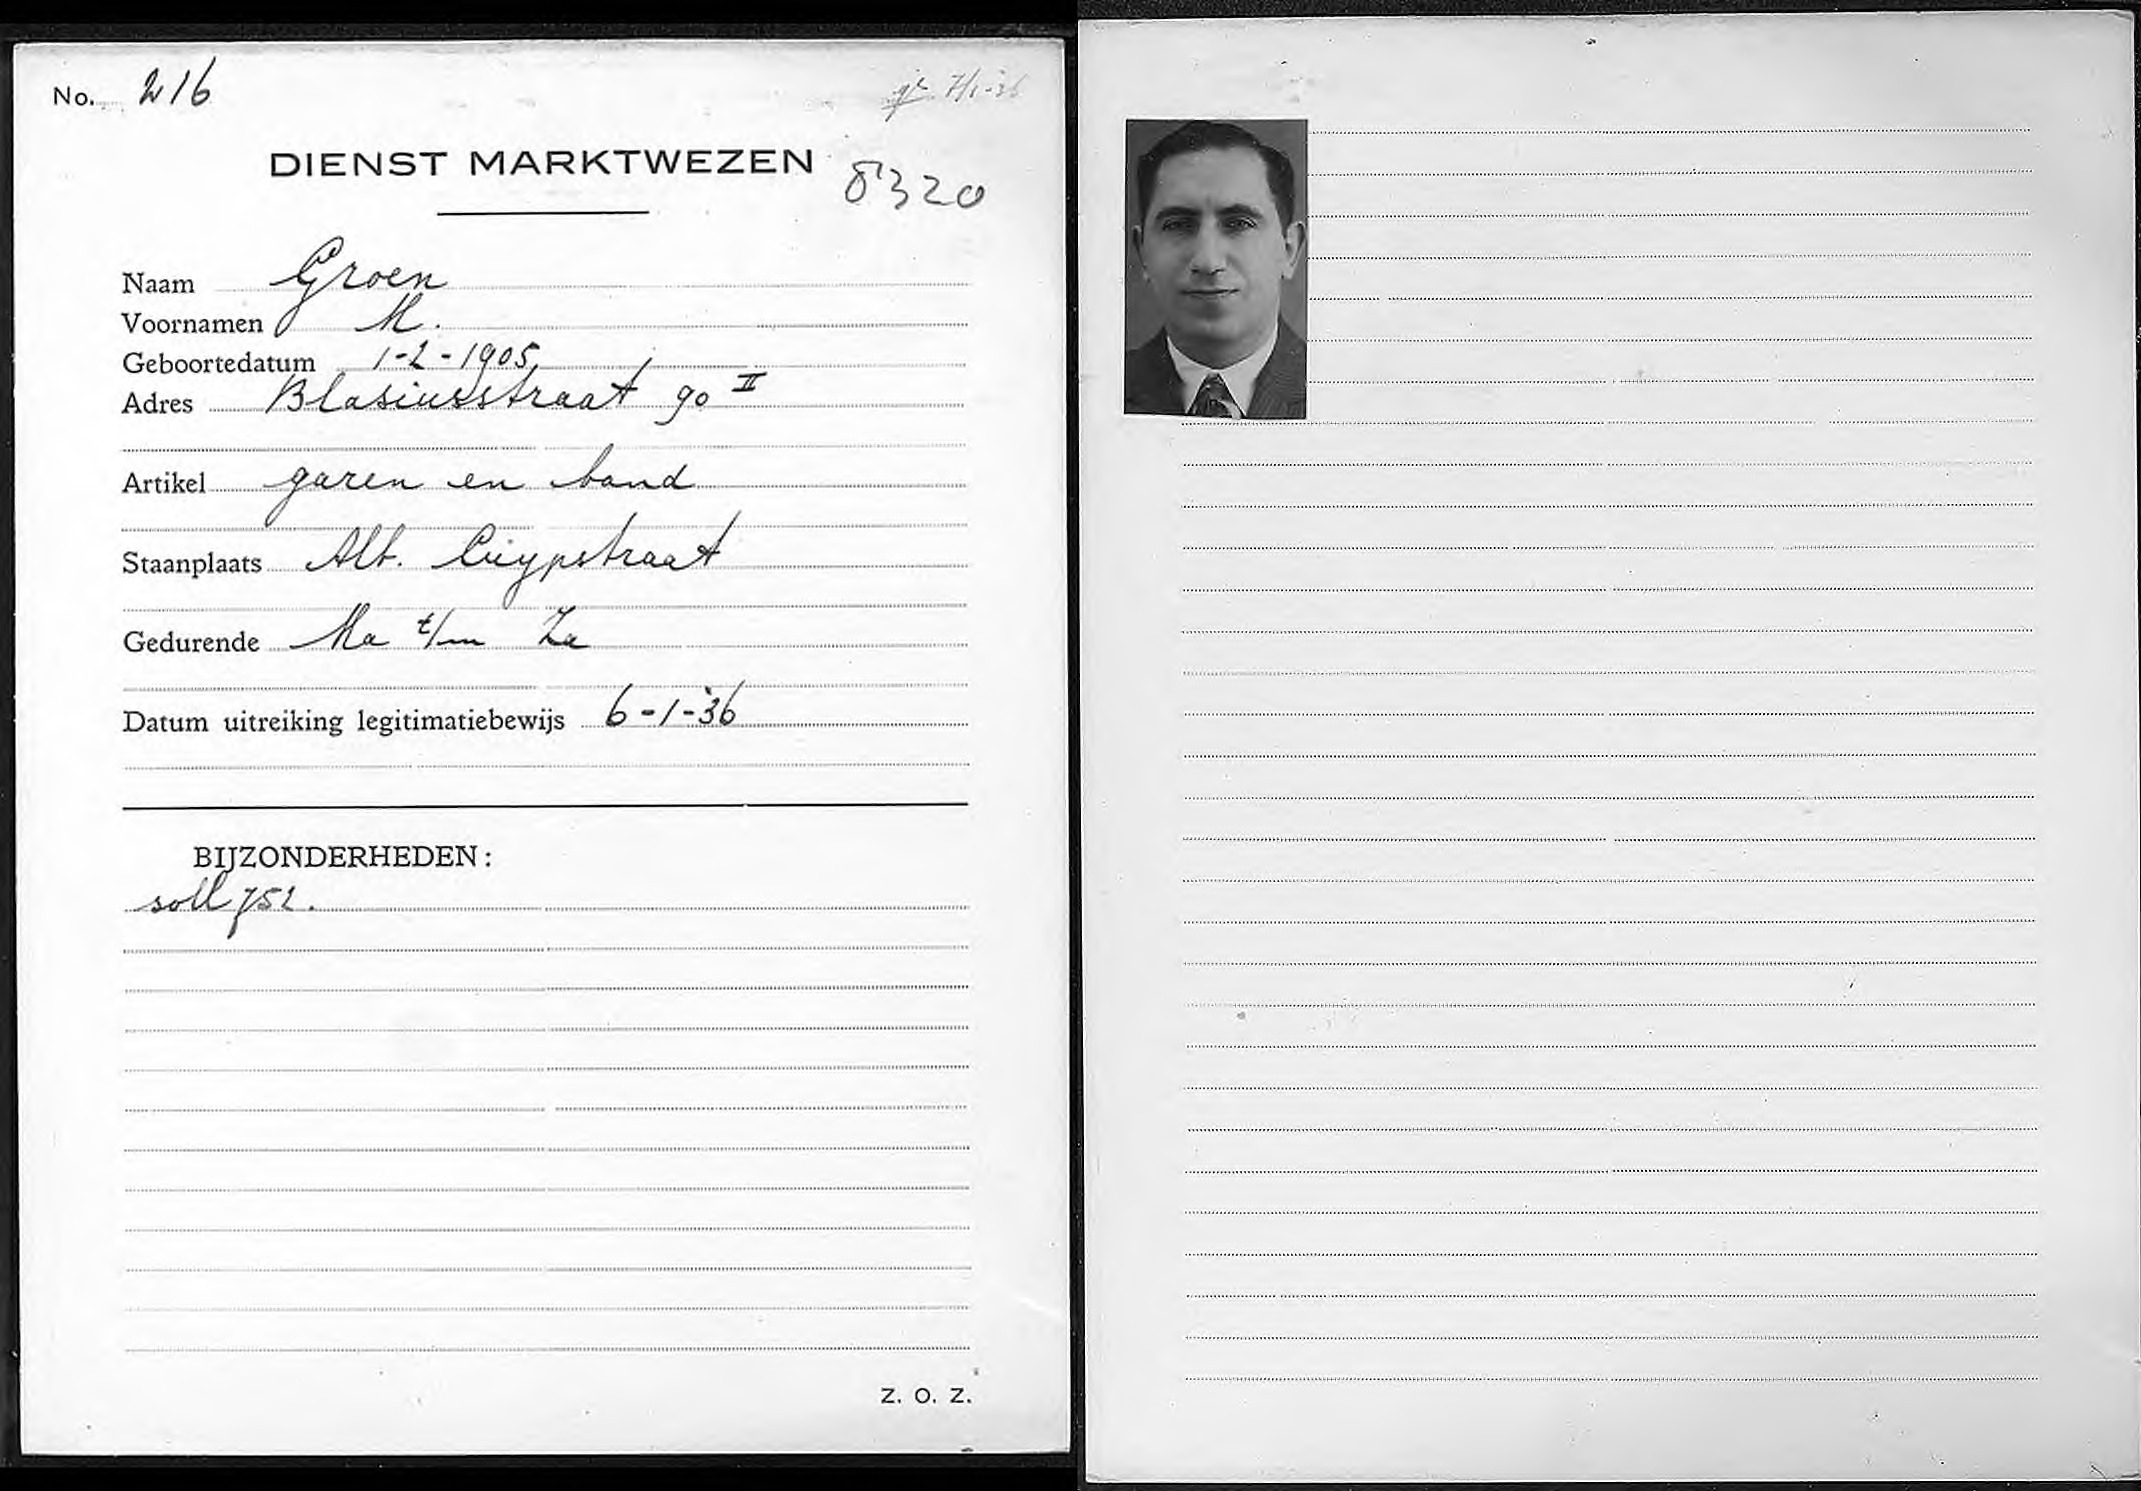 No. 216
7/1-36
DIENST MARKTWEZEN
8320
Naam Groen
Voornamen M.
Geboortedatum 1-2-1905
Adres Blasiusstraat 90 II
Artikel garen en band
Staanplaats Alb. Cuypstraat
Gedurende Ma t/m Za
Datum uitreiking legitimatiebewijs 6-1-'36
BIJZONDERHEDEN:
soll 752.
Z. O. Z.